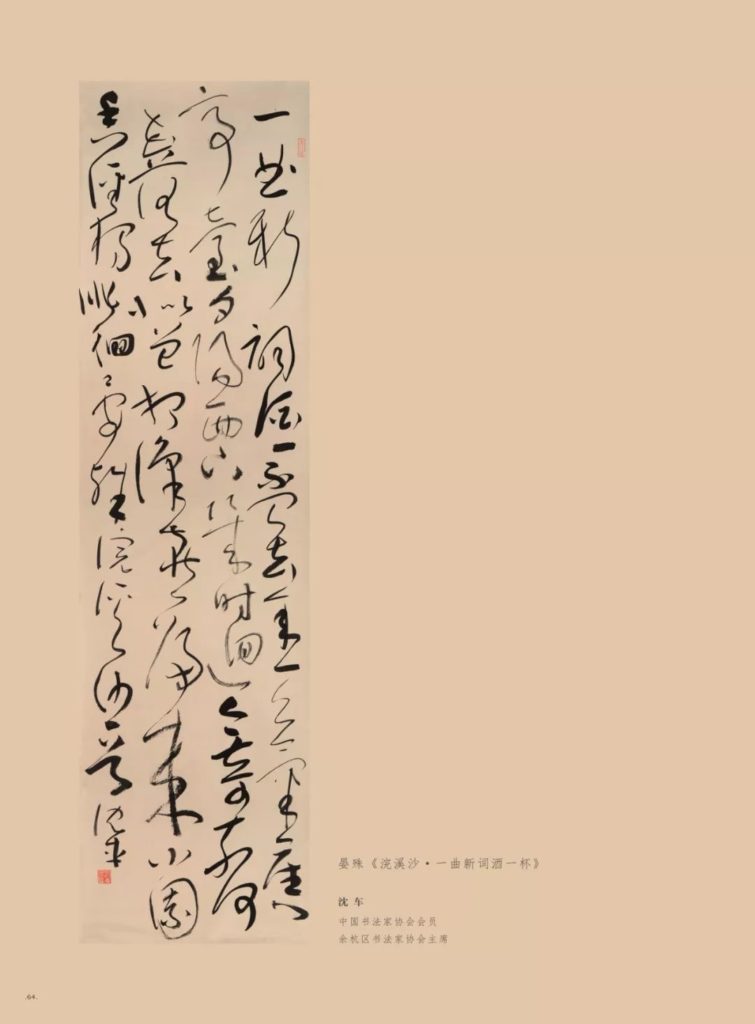 一曲新詞酒一杯去年天氣舊
亭臺夕陽西下幾時迴無可奈何
花落去似曾相識燕歸來小園
香徑獨徘徊晏殊浣溪沙沈車
晏殊《浣溪沙·一曲新词酒一杯》
沈 车
中国书法家协会会员
余杭区书法家协会主席
.64.